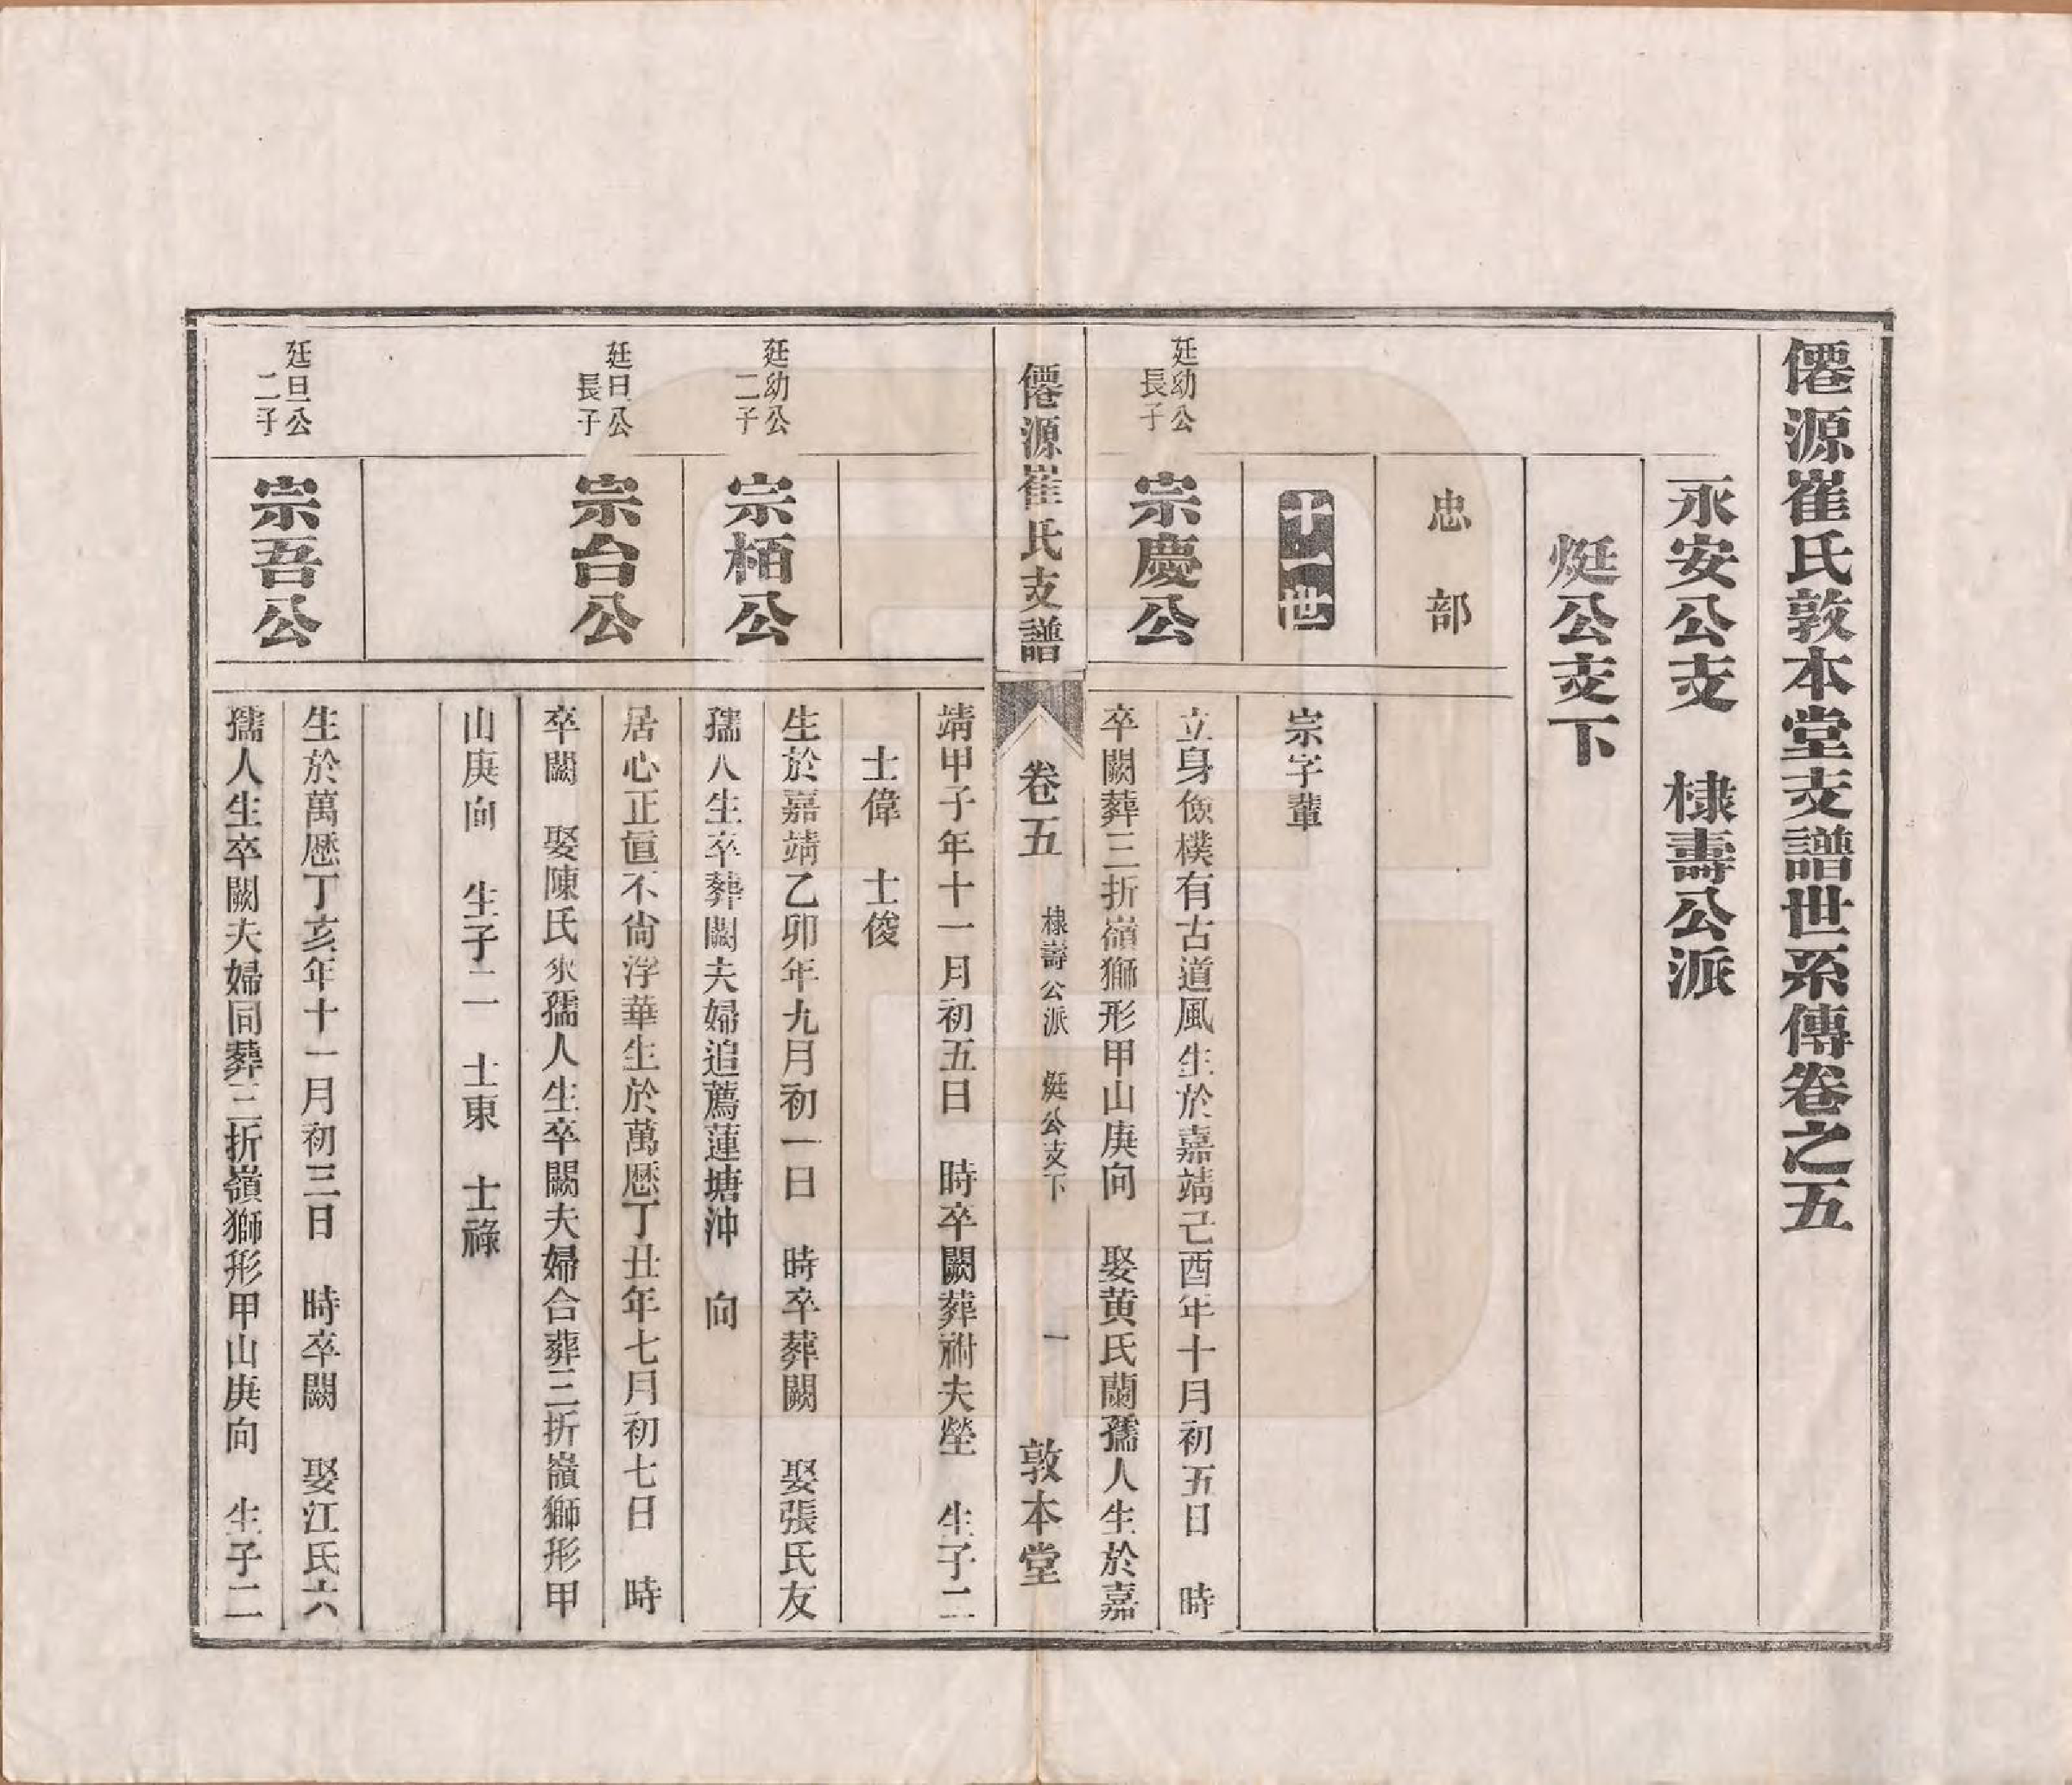 僊源崔氏敦本堂支譜世系傳卷之五
永安公支　棣壽公派
烶公支下
忠部
十一世
宗字輩
廷幼公
長子
宗慶公
立身儉樸有古道風生於嘉靖己酉年十月初五日　時
卒闕葬三折嶺獅形甲山庚向　娶黄氏蘭孺人生於嘉
僊源崔氏支譜
卷五
棣壽公派　烶公支下
一
敦本堂
靖甲子年十一月初五日　時卒闕葬祔夫塋　生子二
士偉　士俊
廷幼公
二子
宗栢公
生於嘉靖乙卯年九月初一日　時卒葬闕　娶張氏友
孺人生卒葬闕夫婦追薦蓮塘沖　向
廷旦公
長子
宗台公
居心正直不尙浮華生於萬厯丁丑年七月初七日　時
卒闕　娶陳氏孺人生卒闕夫婦合葬三折嶺獅形甲
山庚向　生子二　士東　士祿
廷旦公
二子
宗吾公
生於萬厯丁亥年十一月初三日　時卒闕　娶江氏六
孺人生卒闕夫婦同葬三折嶺獅形甲山庚向　生子二